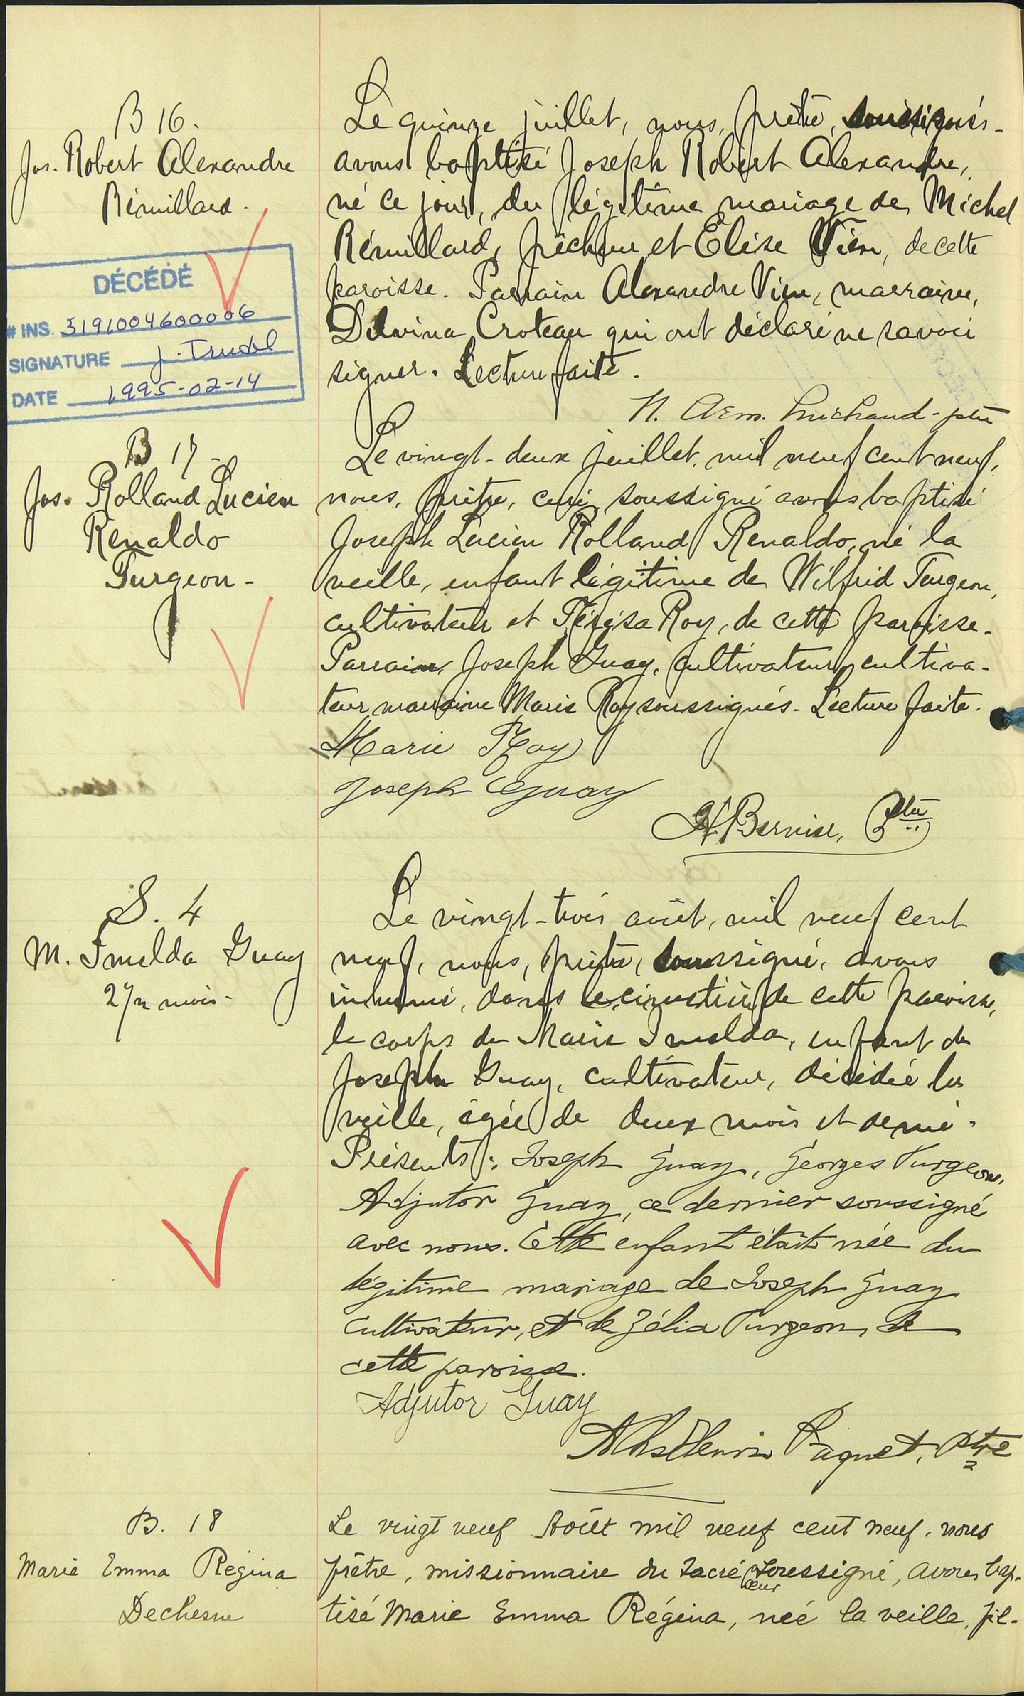 B 16.
Jos. Robert Alexandre
Rémillard.
Le quinze juillet, nous, prêtre, soussignés
avons baptisé Joseph Robert Alexandre,
né ce jour, du légitime mariage de Michel
Rémillard, pêcheur et Elise Vien, de cette
paroisse. Parrain Alexandre Vien, marraine,
Delvina Croteau qui ont déclaré ne savoir
signer. Lecture faite.
DÉCÉDÉ
# INS. 3191004600006
SIGNATURE J. Trudel
DATE 1995-02-14
B 17
Jos. Rolland Lucien
Renaldo
Turgeon-
Le vingt-deux juillet, mil neuf cent neuf,
nous, prêtre, curé, soussigné avons baptisé
Joseph Lucien Rolland Renaldo, né la
veille, enfant légitime de Wilfrid Turgeon,
cultivateur et Térésa Roy, de cette paroisse.
Parrain, Joseph Guay, cultivateur, cultiva-
teur marraine Marie Roy soussignés. Lecture faite.
Marie Roy
Joseph Guay
Bernier, Ptre
S. 4
M. Imelda Guay
2½ mois-
Le vingt-trois août, mil neuf cent
neuf, nous, prêtre, soussigné, avons
inhumé, dans le cimetière de cette paroisse,
le corps de Marie Imelda, enfant de
Joseph Guay, cultivateur, décédée la
veille, âgée de deux mois et demi.
Présents: Joseph Guay, Georges Turgeon,
Adjutor Guay, ce dernier soussigné
avec nous. Cette enfant était née du
légitime mariage de Joseph Guay
cultivateur, et de Zélia Turgeon, de
cette paroisse.
Adjutor Guay
Henri Paquet, Ptre
B. 18
Marie Emma Régina
Dechesne
Le vingt neuf Août mil neuf cent neuf, nous
prêtre, missionnaire du Sacré Cœur soussigné, avons bap-
tisé Marie Emma Régina, née la veille, fil-